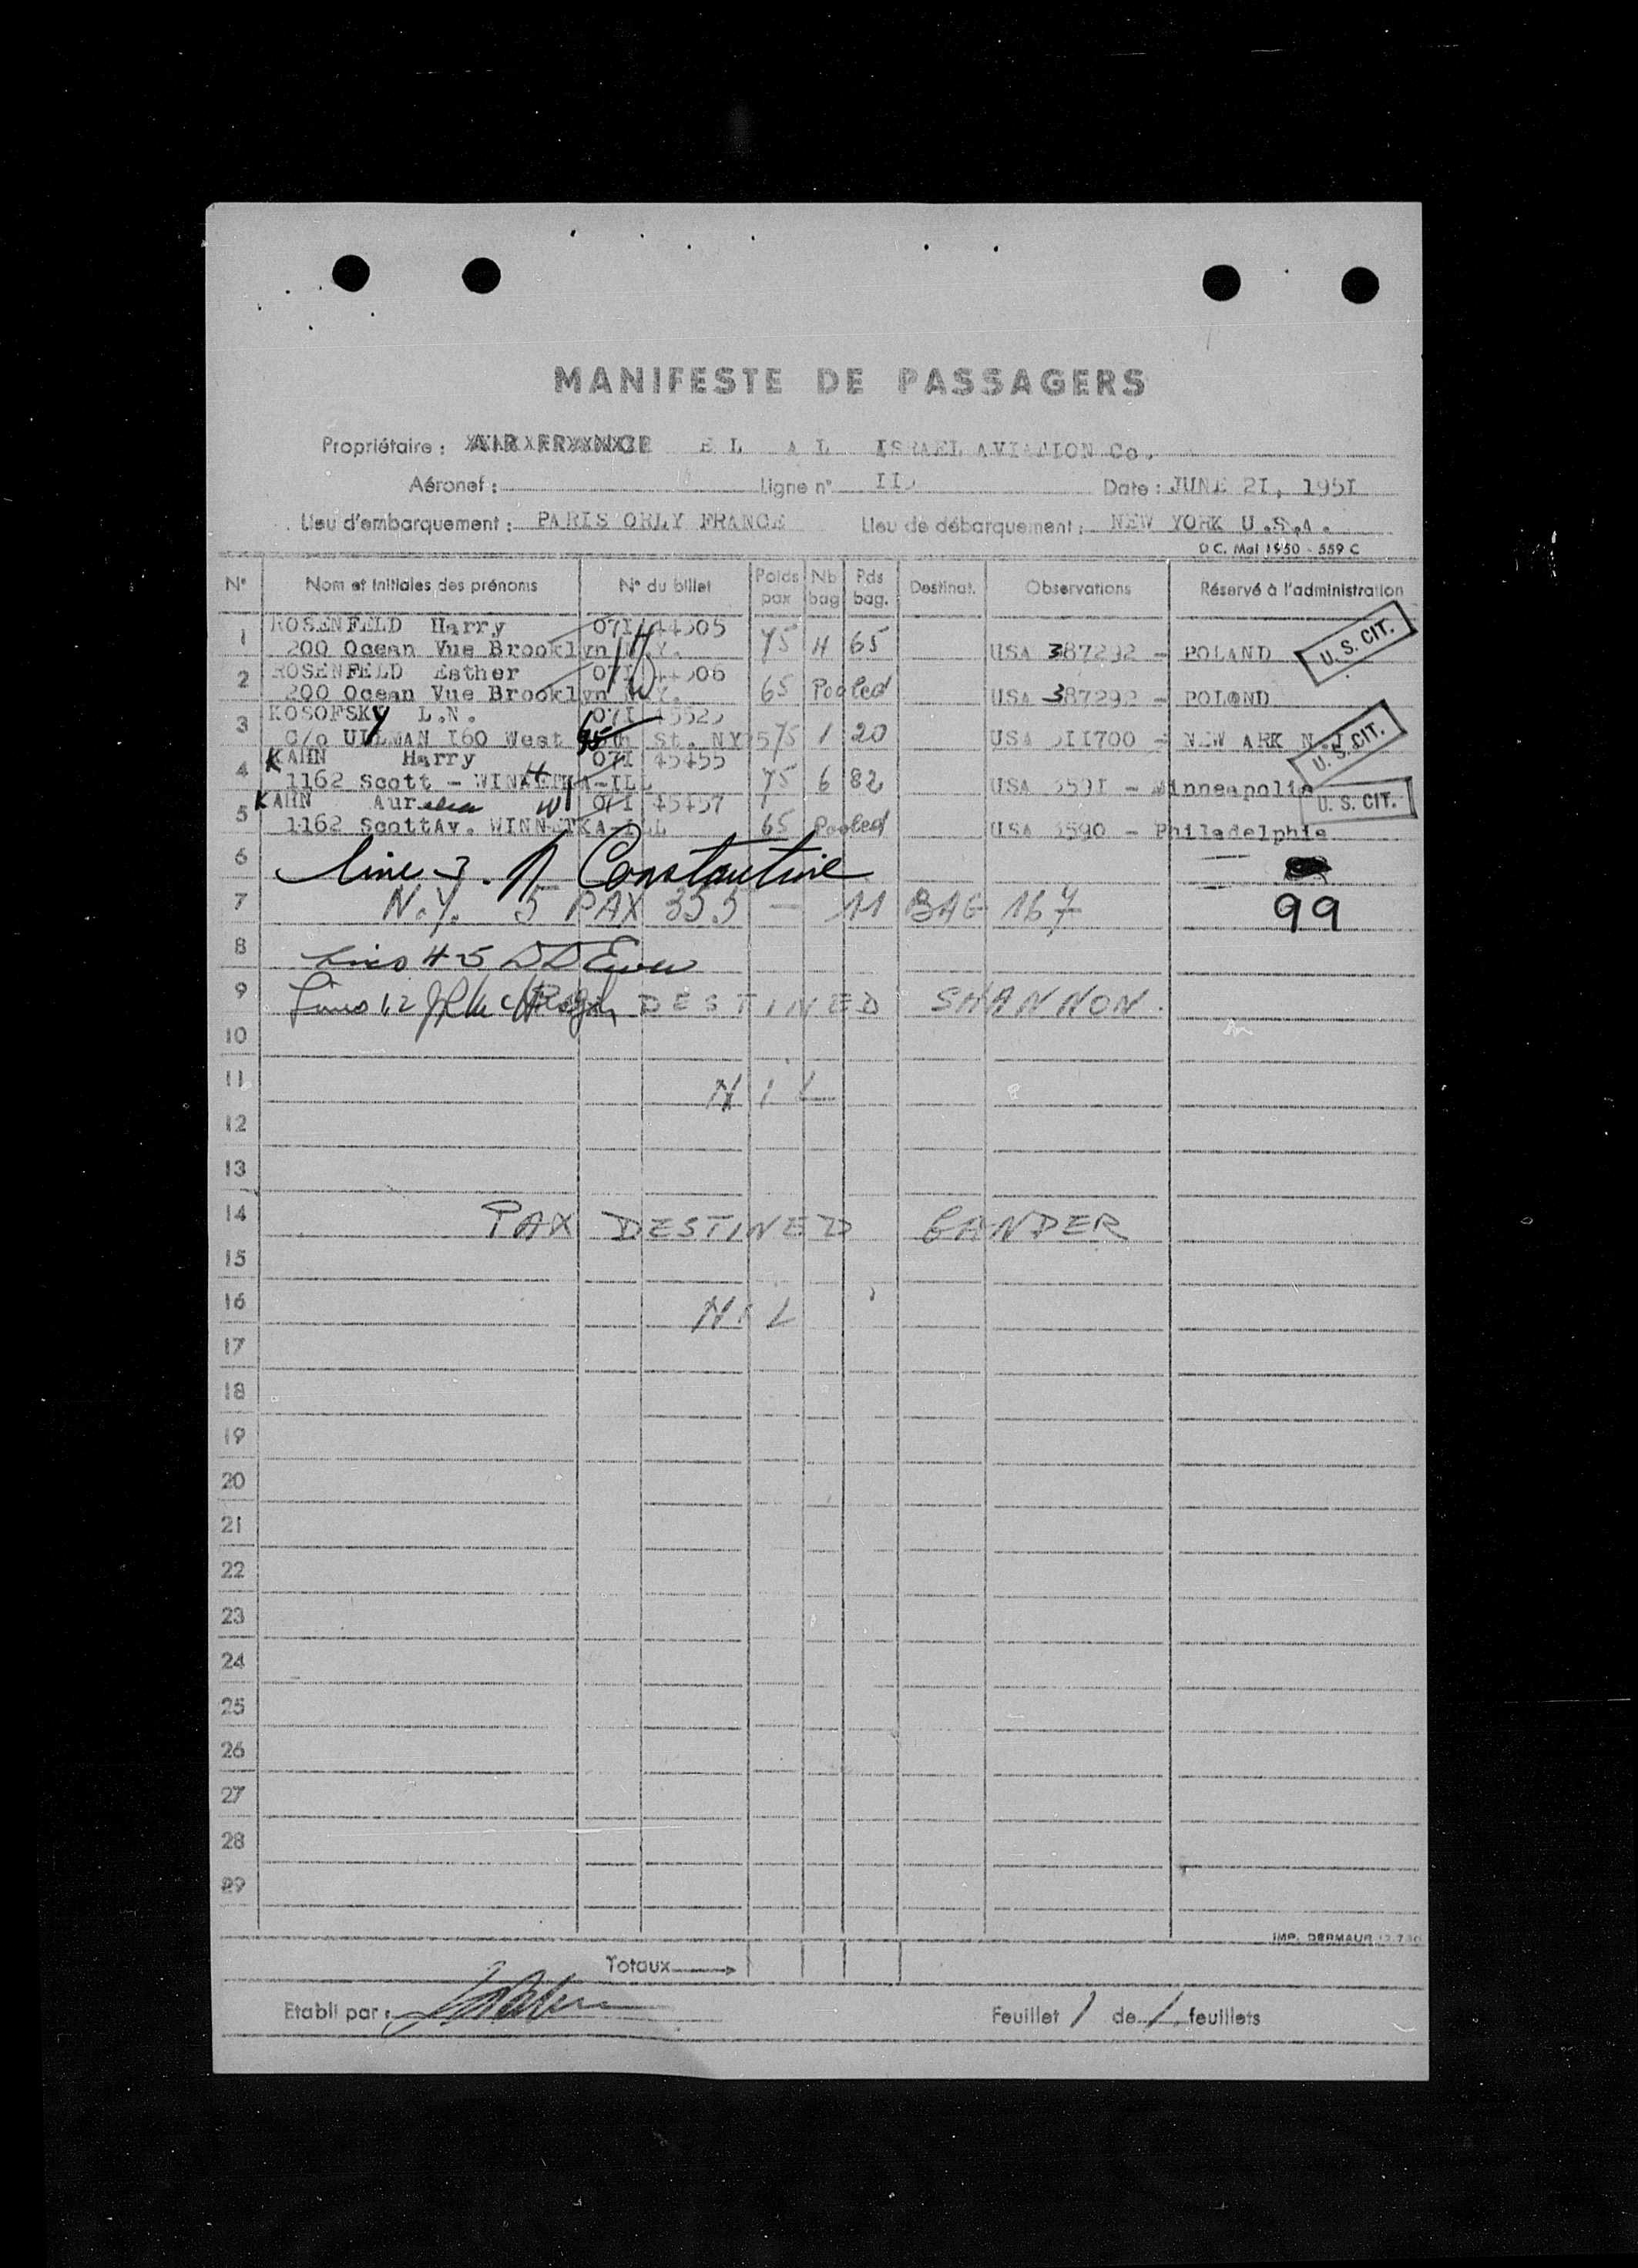 MANIFESTE DE PASSAGERS
Propriétaire : AIR FRANCE E L A L ISRAEL AVIATION Co.
Aéronef : Ligne n° Date : JUNE 2I, 195I
Lieu d'embarquement : PARIS ORLY FRANCE Lieu de débarquement : NEW YORK U.S.A.
D C. Mai 1950 - 559 C
N° Nom et initiales des prénoms N° du billet Poids pax Nb bag Pds bag. Destinat. Observations Réservé à l'administration
1 ROSENFELD Harry 07I 44305 75 4 65
200 Ocean Vue Brooklyn N.Y. USA 387292 - POLAND U. S. CIT.
2 ROSENFELD Esther 07I 44306 65 Pooled
200 Ocean Vue Brooklyn N.Y. USA 387292 - POLAND
3 KOSOFSKY L.N. 07I 75 1 20
C/o ULLMAN I60 West St. NY USA 0II700 - NEW ARK N.J. U. S. CIT.
4 KAHN Harry H 07I 45455 75 6 82
1162 Scott - WINNETKA-ILL USA 559I - Minneapolis
5 KAHN Aurelia W 07I 45457 65 Pooled
1162 ScottAv. WINNETKA ILL USA 5590 - Philadelphia U. S. CIT.
6 line 3. Constantine
7 N.Y. 5 PAX 355 - 11 BAG 167 99
8 Lines 4-5
9 Lines 1.2 DESTINED SHANNON.
10
11 NIL
12
13
14 PAX DESTINED GANDER
15
16 NIL
17
18
19
20
21
22
23
24
25
26
27
28
29
IMP. DERMAUR
Totaux
Etabli par : Feuillet 1 de 1 feuillets